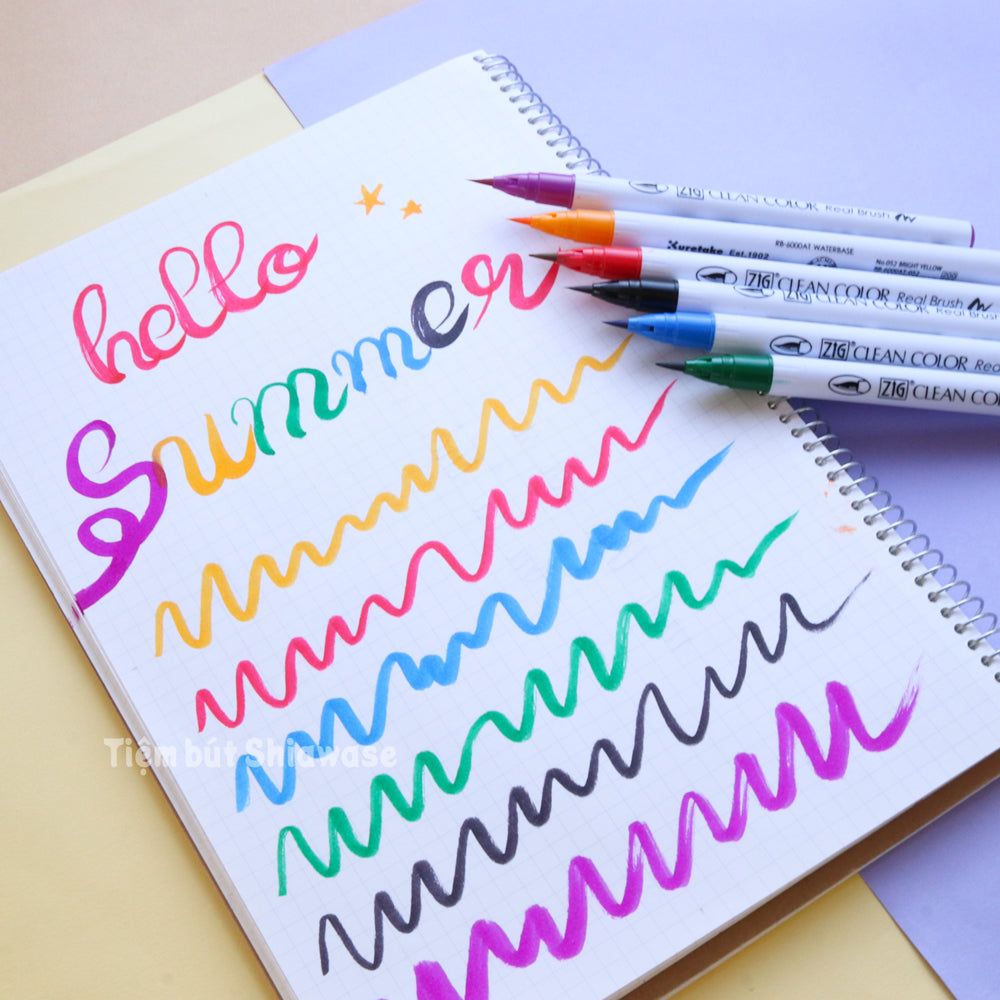 hello
Summer
ZIG CLEAN COLOR Real Brush
Kuretake Est.1902 RB-6000AT WATERBASE No.052 BRIGHT YELLOW
RB-6000AT-052
ZIG CLEAN COLOR Real Brush
CLEAN COLOR Real Brush
ZIG CLEAN COLOR Rea
ZIG CLEAN CO
Tiệm bút Shiawase